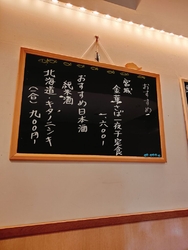 おすすめ
宮城
金華さば一夜干定食
一、六〇〇円
おすすめ日本酒
純米酒
北海道・キタノニシキ
(合)九〇〇円